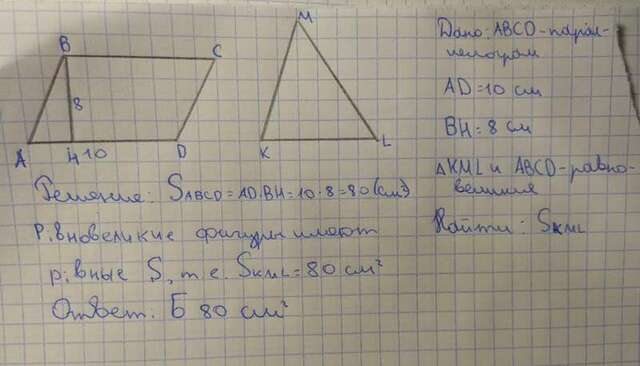 B
C
8
A
H 10
D
M
K
L
Дано: ABCD - парал-
лелограм
AD = 10 см
BH = 8 см
△KML и ABCD - равно-
великие
Найти: SKML
Решение: SABCD = AD·BH = 10·8 = 80 (см²)
Равновеликие фигуры имеют
равные S, т.е. SKML = 80 см²
Ответ: Б 80 см²